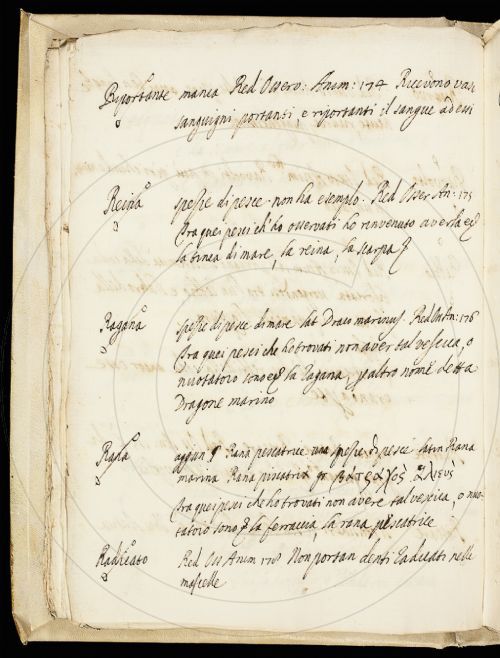 Riportante manca Red Osserv: Anim: 174 Ricevono vasi
sanguigni portanti e riportanti il sangue ad essi
Reina spezie di pesce non ha esemplo. Red Osser An: 175
Fra quei pesci ch'ho osservati ho rinvenuto averla
la tinca di mare, la reina, la scarpa
Ragana spezie di pesce di mare lat Draco marinus. Red An: 176
Fra quei pesci che ho trovati non aver tal vescica, o
nuotatoio sono la Ragana, per altro nome detta
Dragone marino
Rana aggiun Rana pescatrice una spezie di pesce latin Rana
marina Rana piscatrix gr. βάτραχος ἁλιεύς
Fra quei pesci che ho trovati non avere tal vescica, o nuo-
tatoio sono la ferraccia, la rana pescatrice
Radicato Red Oss Anim Non portan denti radicati nelle
mascelle